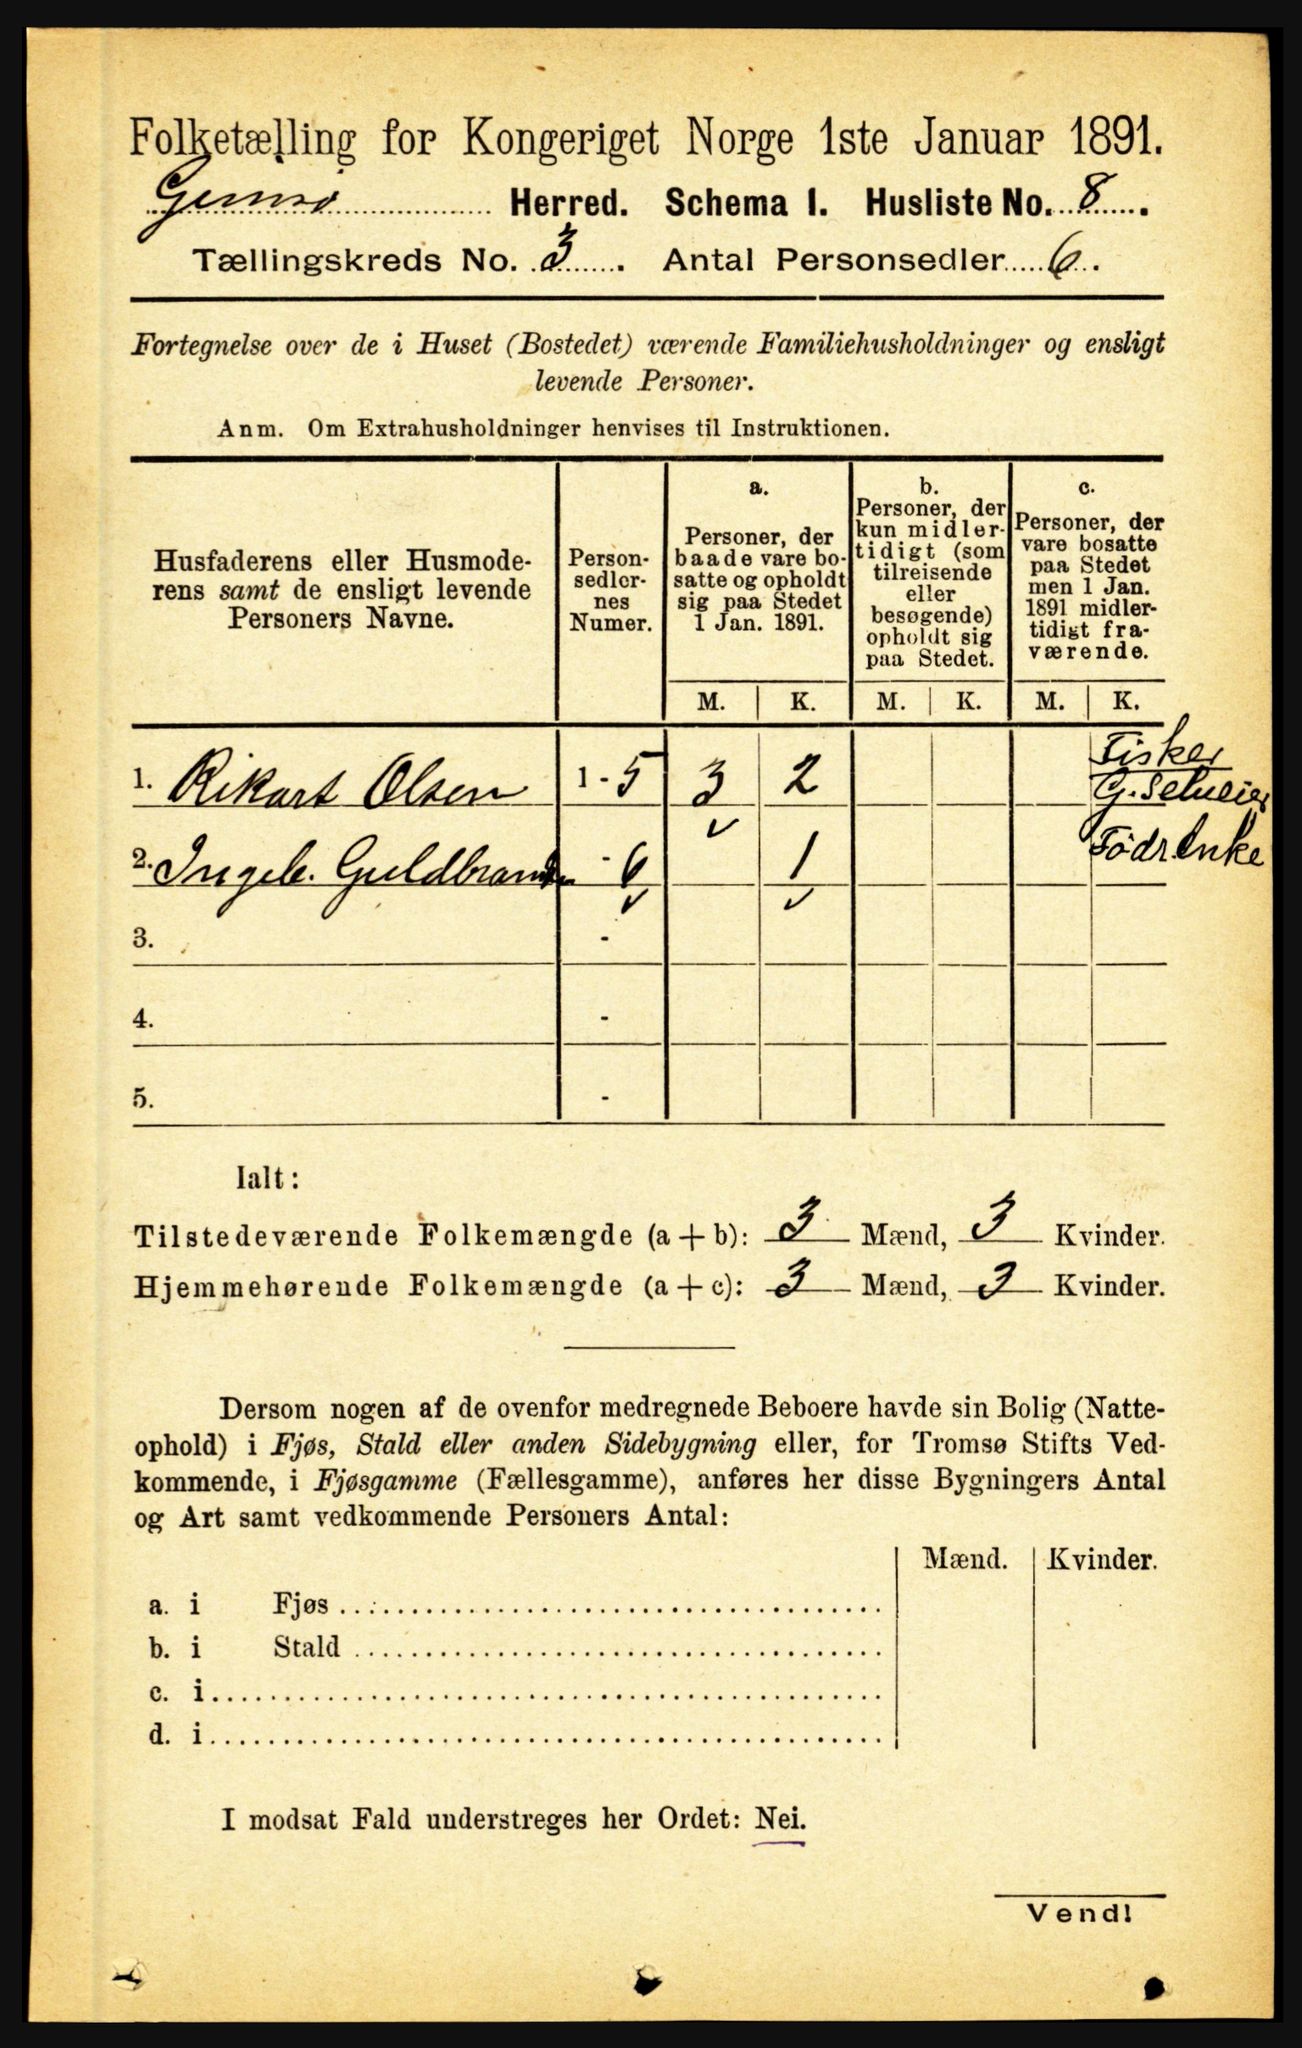 Folketælling for Kongeriget Norge 1ste Januar 1891.
Gimsø Herred. Schema I. Husliste No. 8.
Tællingskreds No. 3. Antal Personsedler 6.
Fortegnelse over de i Huset (Bostedet) værende Familiehusholdninger og ensligt
levende Personer.
Anm. Om Extrahusholdninger henvises til Instruktionen.
Husfaderens eller Husmode-
rens samt de ensligt levende
Personers Navne.
Person-
sedler-
nes
Numer.
a.
Personer, der
baade vare bo-
satte og opholdt
sig paa Stedet
1 Jan. 1891.
b.
Personer, der
kun midler-
tidigt (som
tilreisende
eller
besøgende)
opholdt sig
paa Stedet.
c.
Personer, der
vare bosatte
paa Stedet
men 1 Jan.
1891 midler-
tidigt fra-
værende.
M. K. M. K. M. K.
1. Rikart Olsen 1 - 5 3 2 Fisker
G. Selveier
2. Ingeb. Guldbrands - 6 1 Födr Enke
3. -
4. -
5. -
Ialt:
Tilstedeværende Folkemængde (a + b): 3 Mænd, 3 Kvinder.
Hjemmehørende Folkemængde (a + c): 3 Mænd, 3 Kvinder.
Dersom nogen af de ovenfor medregnede Beboere havde sin Bolig (Natte-
ophold) i Fjøs, Stald eller anden Sidebygning eller, for Tromsø Stifts Ved-
kommende, i Fjøsgamme (Fællesgamme), anføres her disse Bygningers Antal
og Art samt vedkommende Personers Antal:
Mænd. Kvinder.
a. i Fjøs
b. i Stald
c. i
d. i
I modsat Fald understreges her Ordet: Nei.
Vend!